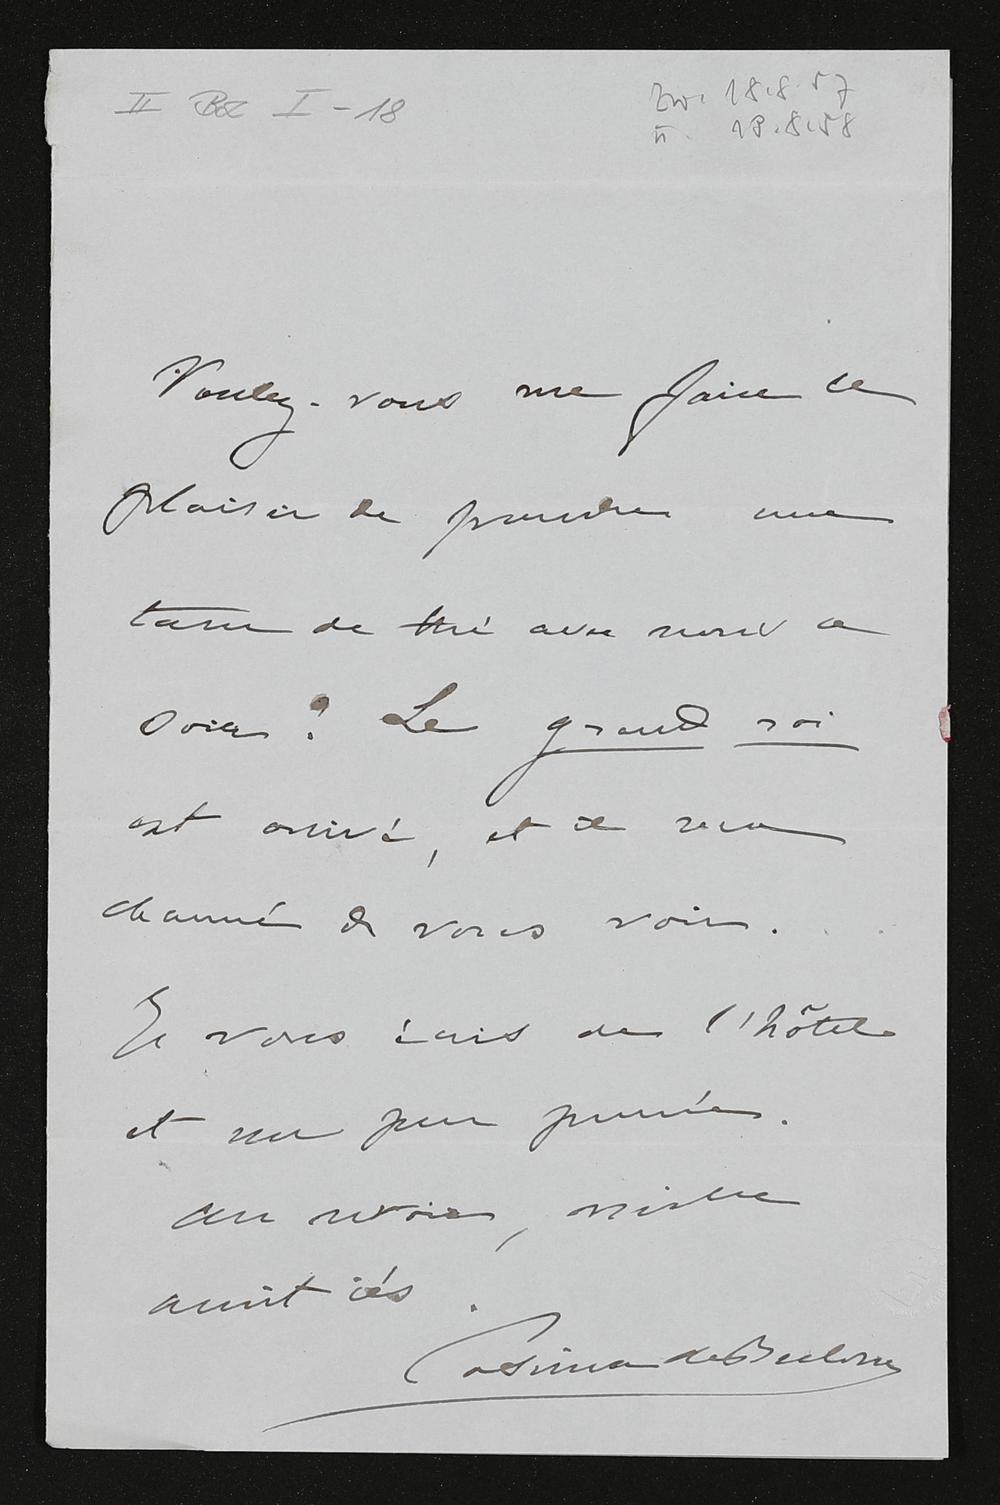 II Bl I - 18
Zw. 18.8.57
u. 18.8.58
Voulez-vous me faire le
plaisir de prendre une
tasse de thé avec nous ce
soir ? Le grand roi
est arrivé, et il sera
charmé de vous voir.
Je vous écris de l'hôtel
et un peu pressée.
Au revoir, mille
amitiés.
Cosima de Bulow